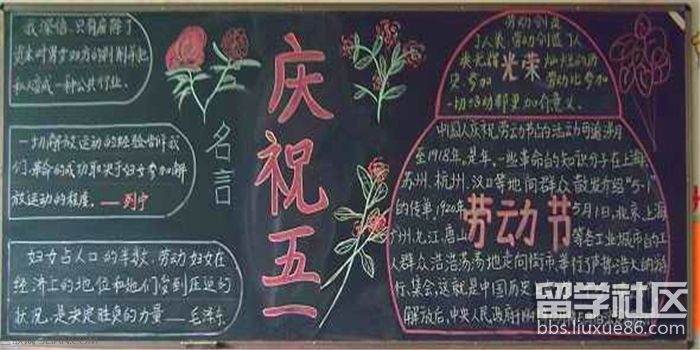 我深信,只有废除了
资本对男女双方的剥削并把
私人变成一种公共行业。
一切解放运动的经验告诉我
们,革命的成功取决于妇女参加解
放运动的程度。——列宁
妇女占人口的半数,劳动妇女在
经济上的地位和她们受到压迫的
状况,是决定胜负的力量——毛泽东
名言
庆祝五一
劳动创造
了人类 劳动创造了人
类光辉 光荣 灿烂的历
史,参加 劳动比参加
一切活动都更加有意义。
中国人庆祝劳动节的活动可追溯
至1918年,是年,一些革命的知识分子在上海
苏州、杭州、汉口等地向群众散发介绍"5·1"
的传单,1920年 5月1日,北京、上海
广州、九江、唐山 劳动节 等各工业城市的工
人群众浩浩荡荡地走向街市举行了声势浩大的游
行、集会,这就是中国历史
解放后,中央人民政府于19
留学社区
bbs.liuxue86.com